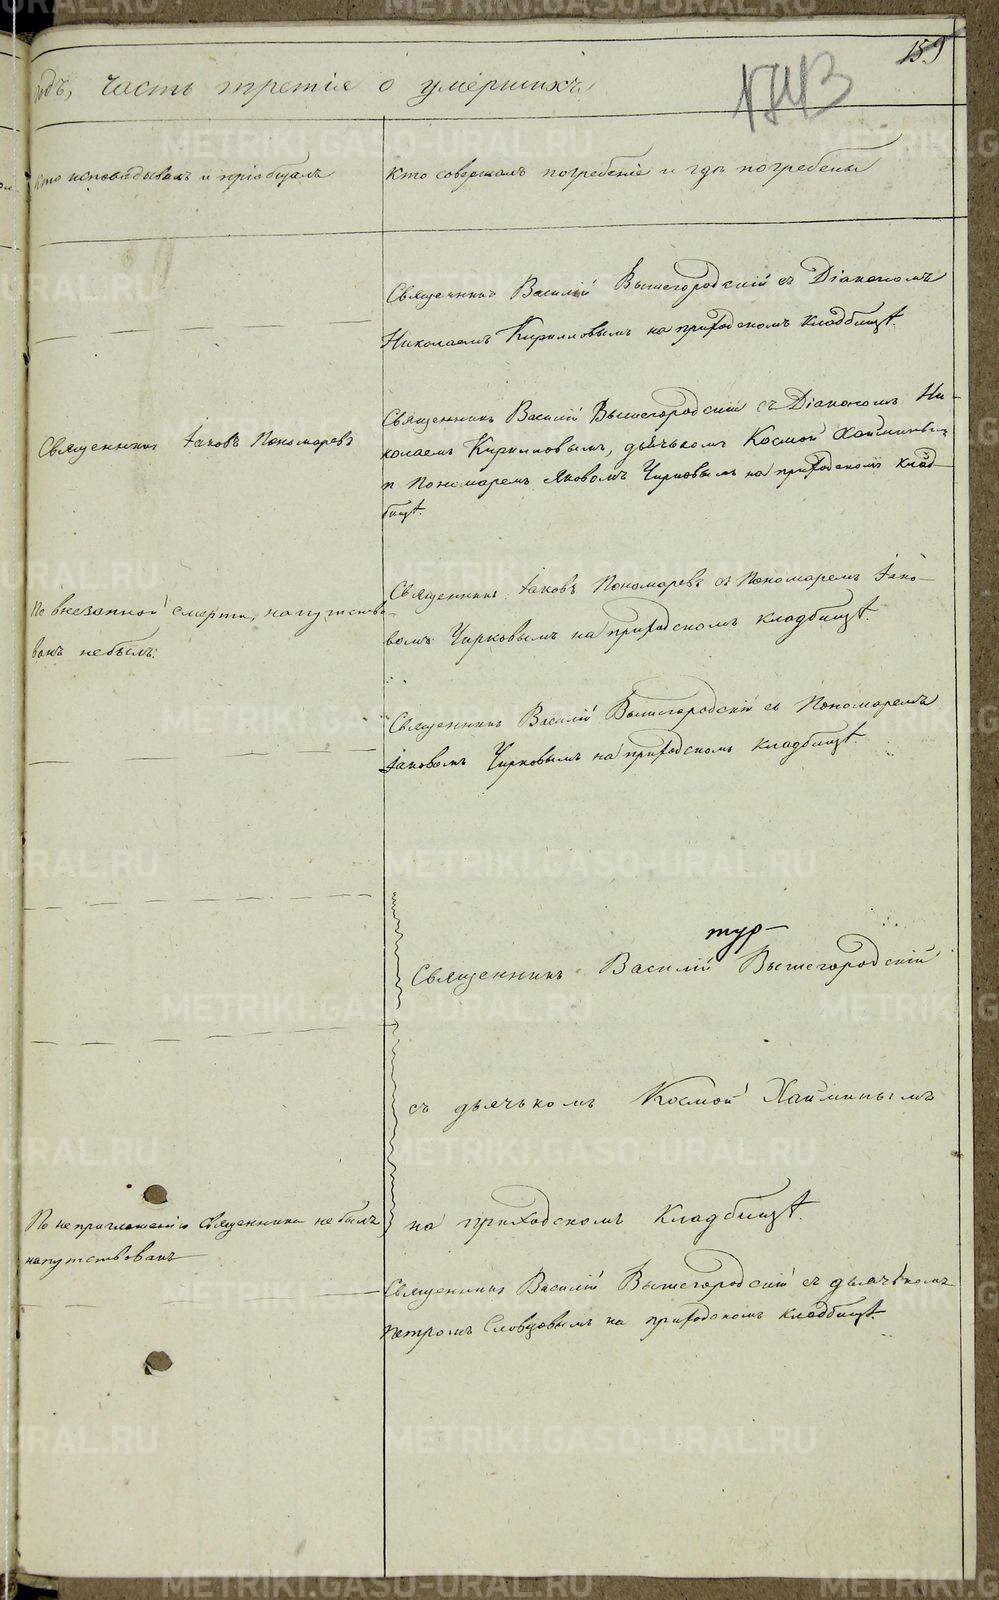 159
1713
годъ, часть третiя о умершихъ
Кто исповѣдывалъ и прiобщалъ
Кто совершалъ погребенiе и гдѣ погребены
Священникъ Василiй Вышегородскiй съ Дiакономъ
Николаемъ Кирилловымъ на приходскомъ кладбищѣ.
Священникъ Iаковъ Пономаревъ
Священникъ Василiй Вышегородскiй съ Дiакономъ Ни-
колаемъ Кирилловымъ, дьячькомъ Космой Хайминымъ
и Пономаремъ Яковомъ Чирковымъ на приходскомъ клад-
бищѣ.
По внезапной смерти, напутство-
ванъ небылъ.
Священникъ Iаковъ Пономаревъ съ Пономаремъ Iако-
вомъ Чирковымъ на приходскомъ кладбищѣ.
Священникъ Василiй Вышегородскiй съ Пономаремъ
Iаковомъ Чирковымъ на приходскомъ кладбищѣ.
тур-
Священникъ Василiй Вышегородскiй
съ дьячькомъ Космой Хайминымъ
на приходскомъ кладбищѣ.
По неприглашенiю Священника не былъ
напутствованъ
Священникъ Василiй Вышегородскiй съ дьячькомъ
Петромъ Словцовымъ на приходскомъ кладбищѣ.
METRIKI.GASO-URAL.RU